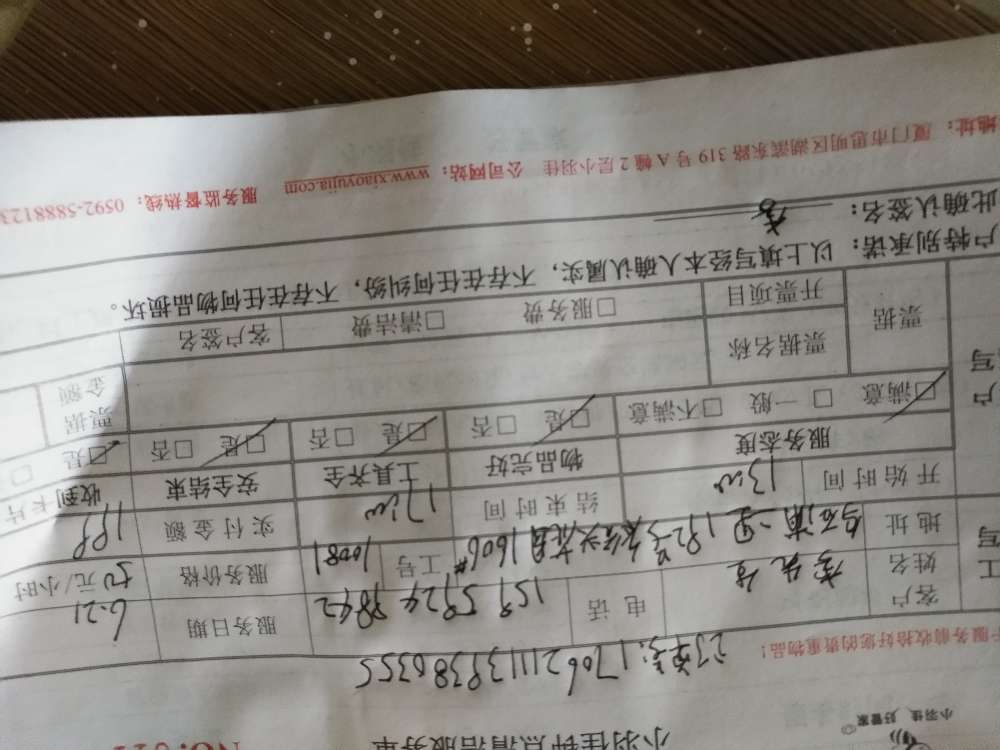 小羽佳 好管家
小羽佳钟点清洁服务单
NO:011
服务前收拾好您的贵重物品!
订单号:1706211139386355
客户姓名
电话 159 5924 9842
服务日期 6.21
地址
工号 10081
服务价格 50元/小时
开始时间 13:00
结束时间 17:00
实付金额
服务态度 物品完好 工具齐全 安全结束 收到卡片
☑满意 □一般 □不满意 ☑是 □否 ☑是 □否 ☑是 □否 ☑是 □
票据 票据名称 票据金额
开票项目 □服务费 □清洁费 客户签名
户特别承诺:以上填写经本人确认属实,不存在任何纠纷,不存在任何物品损坏。
此确认签名:
地址:厦门市思明区湖滨东路319号A幢2层小羽佳 公司网站:www.xiaoyujia.com 服务监督热线:0592-5888123